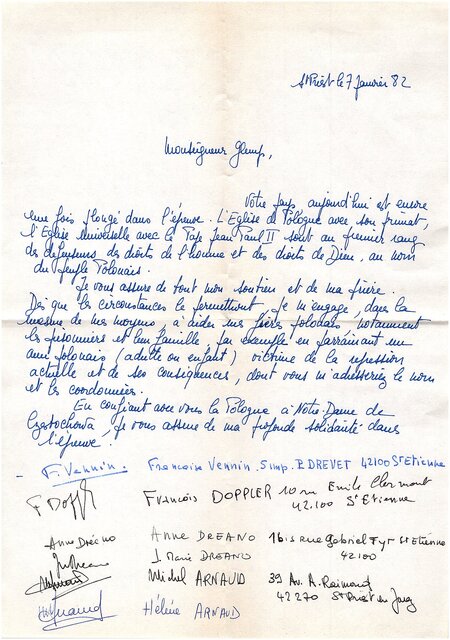 St Priest le 7 Janvier 82
Monseigneur Glemp,
Votre pays aujourd'hui est encore
une fois plongé dans l'épreuve. L'Eglise de Pologne avec son primat,
l'Eglise Universelle avec le Pape Jean Paul II sont au premier rang
des defenseurs des droits de l'homme et des droits de Dieu, au nom
du peuple Polonais.
Je vous assure de tout mon soutien et de ma prière.
Dès que les circonstances le permettront, je m'engage, dans la
mesure de mes moyens, à aider mes frères polonais, notamment
les prisonniers et leur famille, par exemple en parrainant un
ami polonais (adulte ou enfant) victime de la repression
actuelle et de ses conséquences, dont vous m'adresseriez le nom
et les coordonnées.
En confiant avec vous la Pologne à Notre-Dame de
Czestochowa, je vous assure de ma profonde solidarité dans
l'épreuve.
F. Vennin. Françoise Vennin. 5 imp. P. DREVET 42100 St Etienne
F Doppler François DOPPLER 10 rue Emile Clermont
42.100 St Etienne
Anne Dréano Anne DREANO 16 is rue Gabriel Fyr St Etienne
J. Marie DREANO 42100
Michel ARNAUD 39 Av. A. Raimond
42270 St Priest en Jarez
Hélène ARNAUD